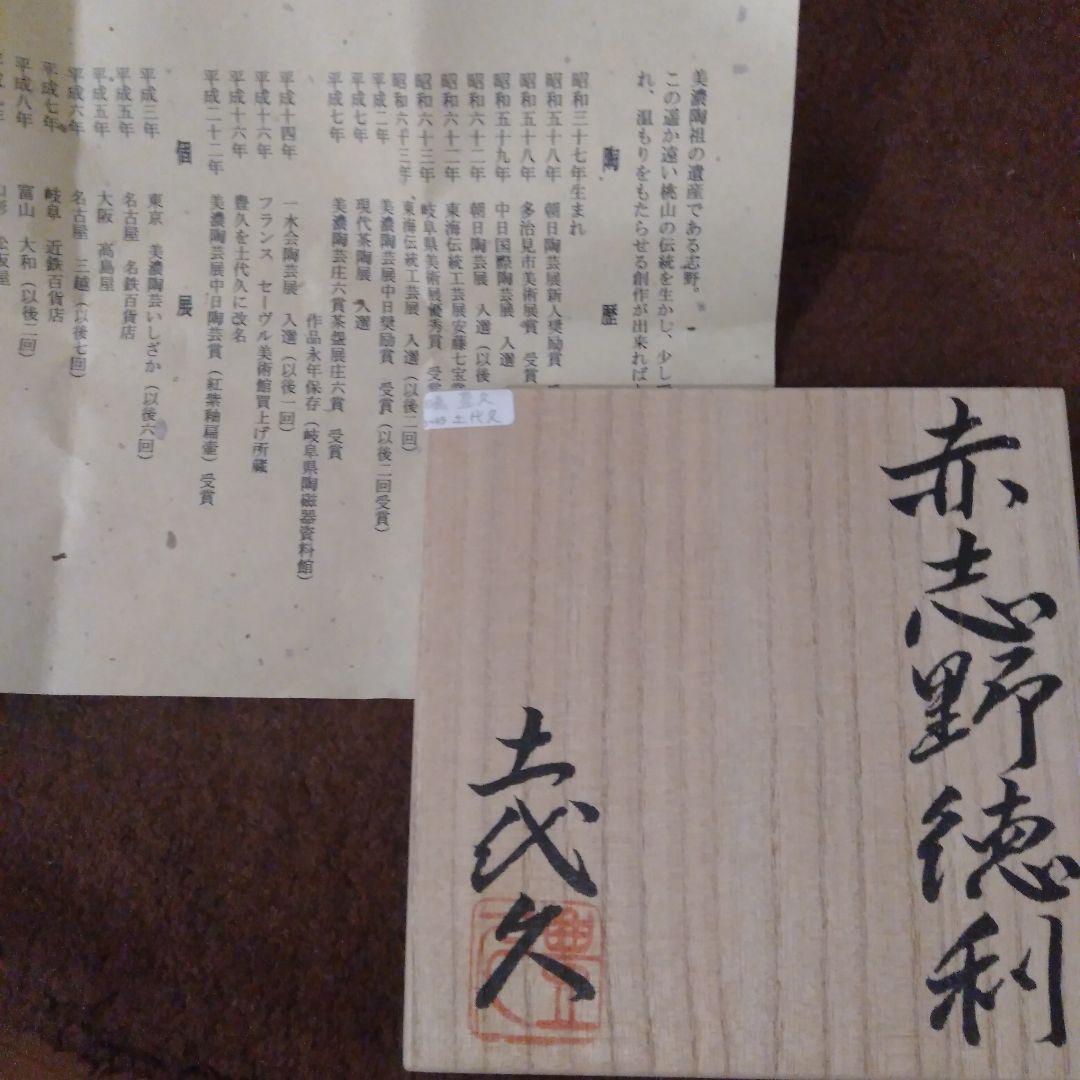 美濃陶祖の遺産である志野。
この遥か遠い桃山の伝統を生かし、少しで
れ、温もりをもたらせる創作が出来れば
陶歴
昭和三十七年生まれ
昭和五十八年 朝日陶芸展新人奨励賞
昭和五十八年 多治見市美術展賞 受賞
昭和五十九年 中日国際陶芸展 入選
昭和六十二年 朝日陶芸展 入選(以後
昭和六十二年 東海伝統工芸展安藤七宝
昭和六十三年 岐阜県美術展優秀賞 受賞
昭和六十三年 東海伝統工芸展 入選(以後二回)
平成二年 美濃陶芸展中日奨励賞 受賞(以後二回受賞)
平成七年 現代茶陶展 入選
平成七年 美濃陶芸庄六賞茶盌展庄六賞 受賞
作品永年保存(岐阜県陶磁器資料館)
平成十四年 一水会陶芸展 入選(以後一回)
平成十六年 フランス セーヴル美術館買上げ所蔵
平成十六年 豊久を土代久に改名
平成二十二年 美濃陶芸展中日陶芸賞(紅紫釉扁壷)受賞
個展
平成三年 東京 美濃陶芸いしざか(以後六回)
平成五年 名古屋 名鉄百貨店
平成五年 大阪 高島屋
平成六年 名古屋 三越(以後七回)
平成七年 岐阜 近鉄百貨店
平成八年 富山 大和(以後二回)
豊久
土代久
赤志野徳利
土代久